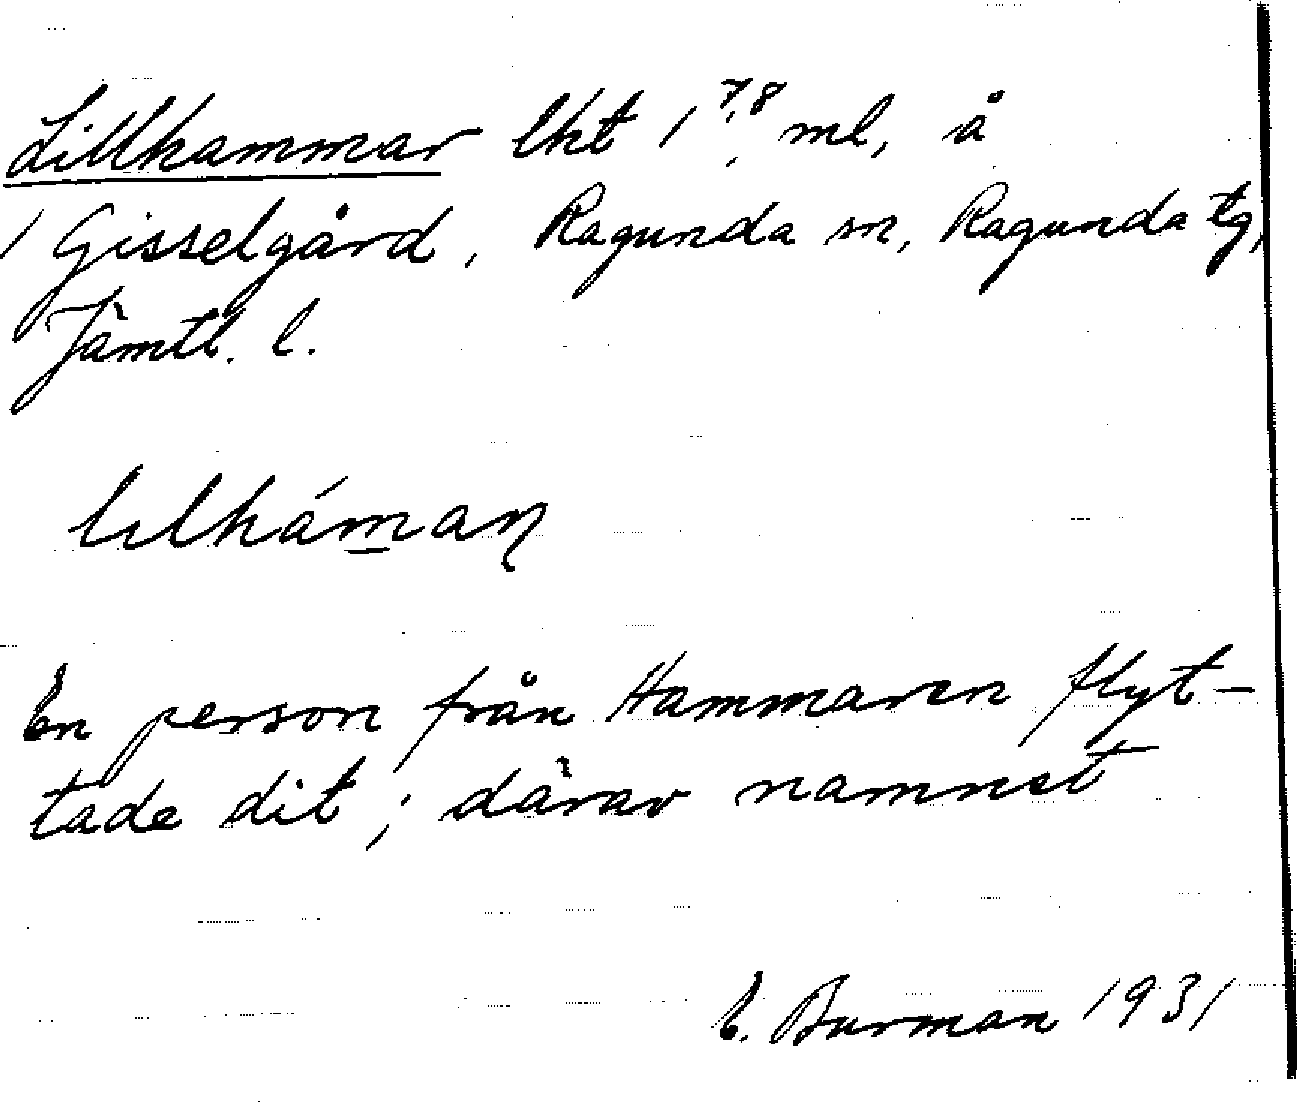 Lillhammar lht 1 7,8 ml, å
1 Gisselgård, Ragunda sn, Ragunda tg,
Jämtl. l.
lılháman̥
En person från Hammaren flyt-
tade dit; därav namnet
E. Burman 1931